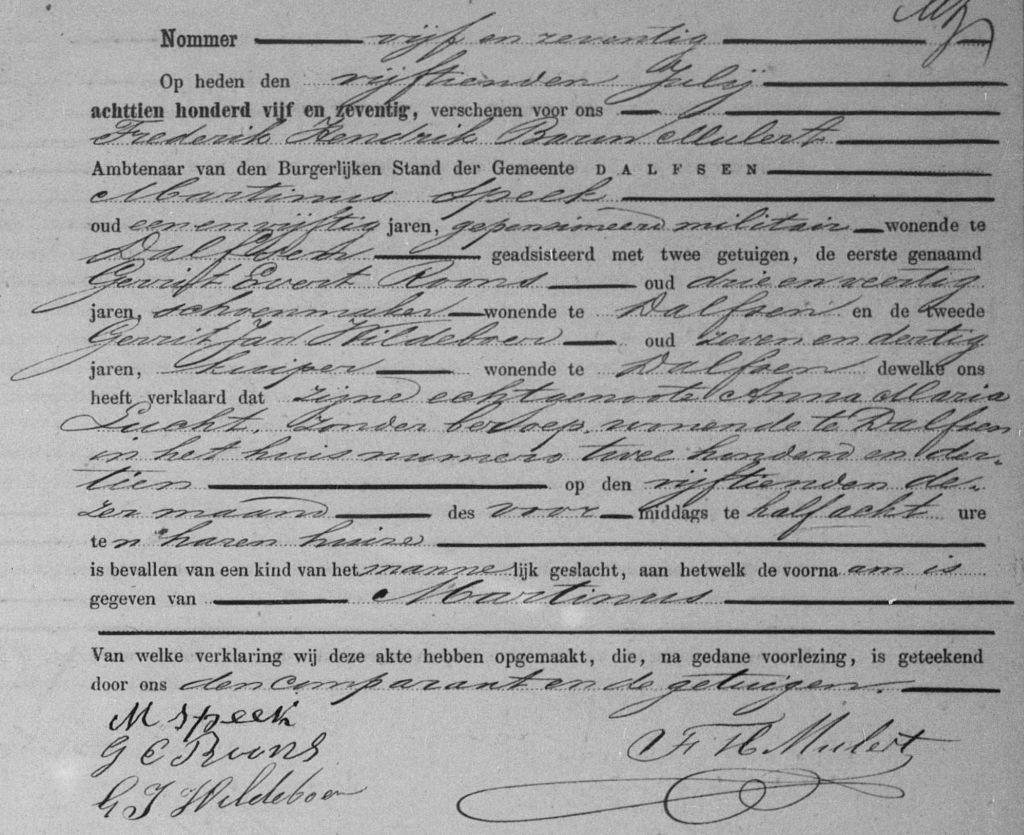 Nommer vijf en zeventig
Op heden den vijftienden Julij
achttien honderd vijf en zeventig, verschenen voor ons
Frederik Hendrik Baron Mulert
Ambtenaar van den Burgerlijken Stand der Gemeente DALFSEN
Martinus Speek
oud een en vijftig jaren, gepensioneerd militair wonende te
Dalfsen geadsisteerd met twee getuigen, de eerste genaamd
Gerrit Evert Roons oud drie en veertig
jaren, schoenmaker wonende te Dalfsen en de tweede
Gerrit Jan Wildeboer oud zeven en dertig
jaren, kuiper wonende te Dalfsen dewelke ons
heeft verklaard dat zijne echtgenoote Anna Maria
Lucht, zonder beroep, wonende te Dalfsen
in het huis numero twee honderd en der-
tien op den vijftienden de-
zer maand des voor middags te half acht ure
te n haren huize
is bevallen van een kind van het manne lijk geslacht, aan hetwelk de voorna am is
gegeven van Martinus
Van welke verklaring wij deze akte hebben opgemaakt, die, na gedane voorlezing, is geteekend
door ons den comparant en de getuigen.
M Speek
G E Roons
F H Mulert
G J Wildeboer